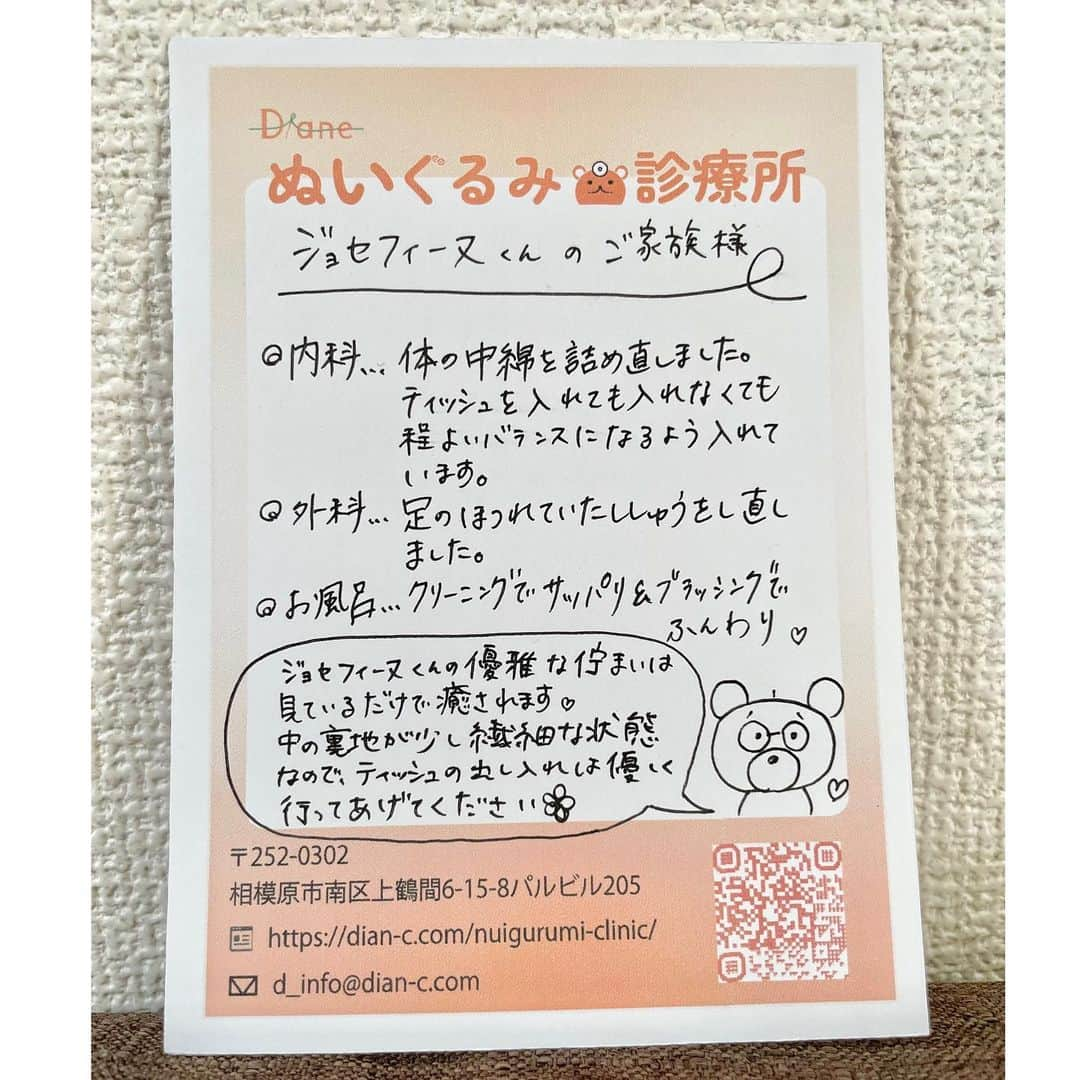 Diane
ぬいぐるみ診療所
ジョセフィーヌくんのご家族様
内科... 体の中綿を詰め直しました。
ティッシュを入れても入れなくても
程よいバランスになるよう入れて
います。
外科... 足のほつれていたししゅうをし直し
ました。
お風呂... クリーニングでサッパリ&ブラッシングで
ふんわり♡
ジョセフィーヌくんの優雅な佇まいは
見ているだけで癒されます♡
中の裏地が少し繊細な状態
なので、ティッシュの出し入れは優しく
行ってあげてください
〒252-0302
相模原市南区上鶴間6-15-8パルビル205
https://dian-c.com/nuigurumi-clinic/
d_info@dian-c.com